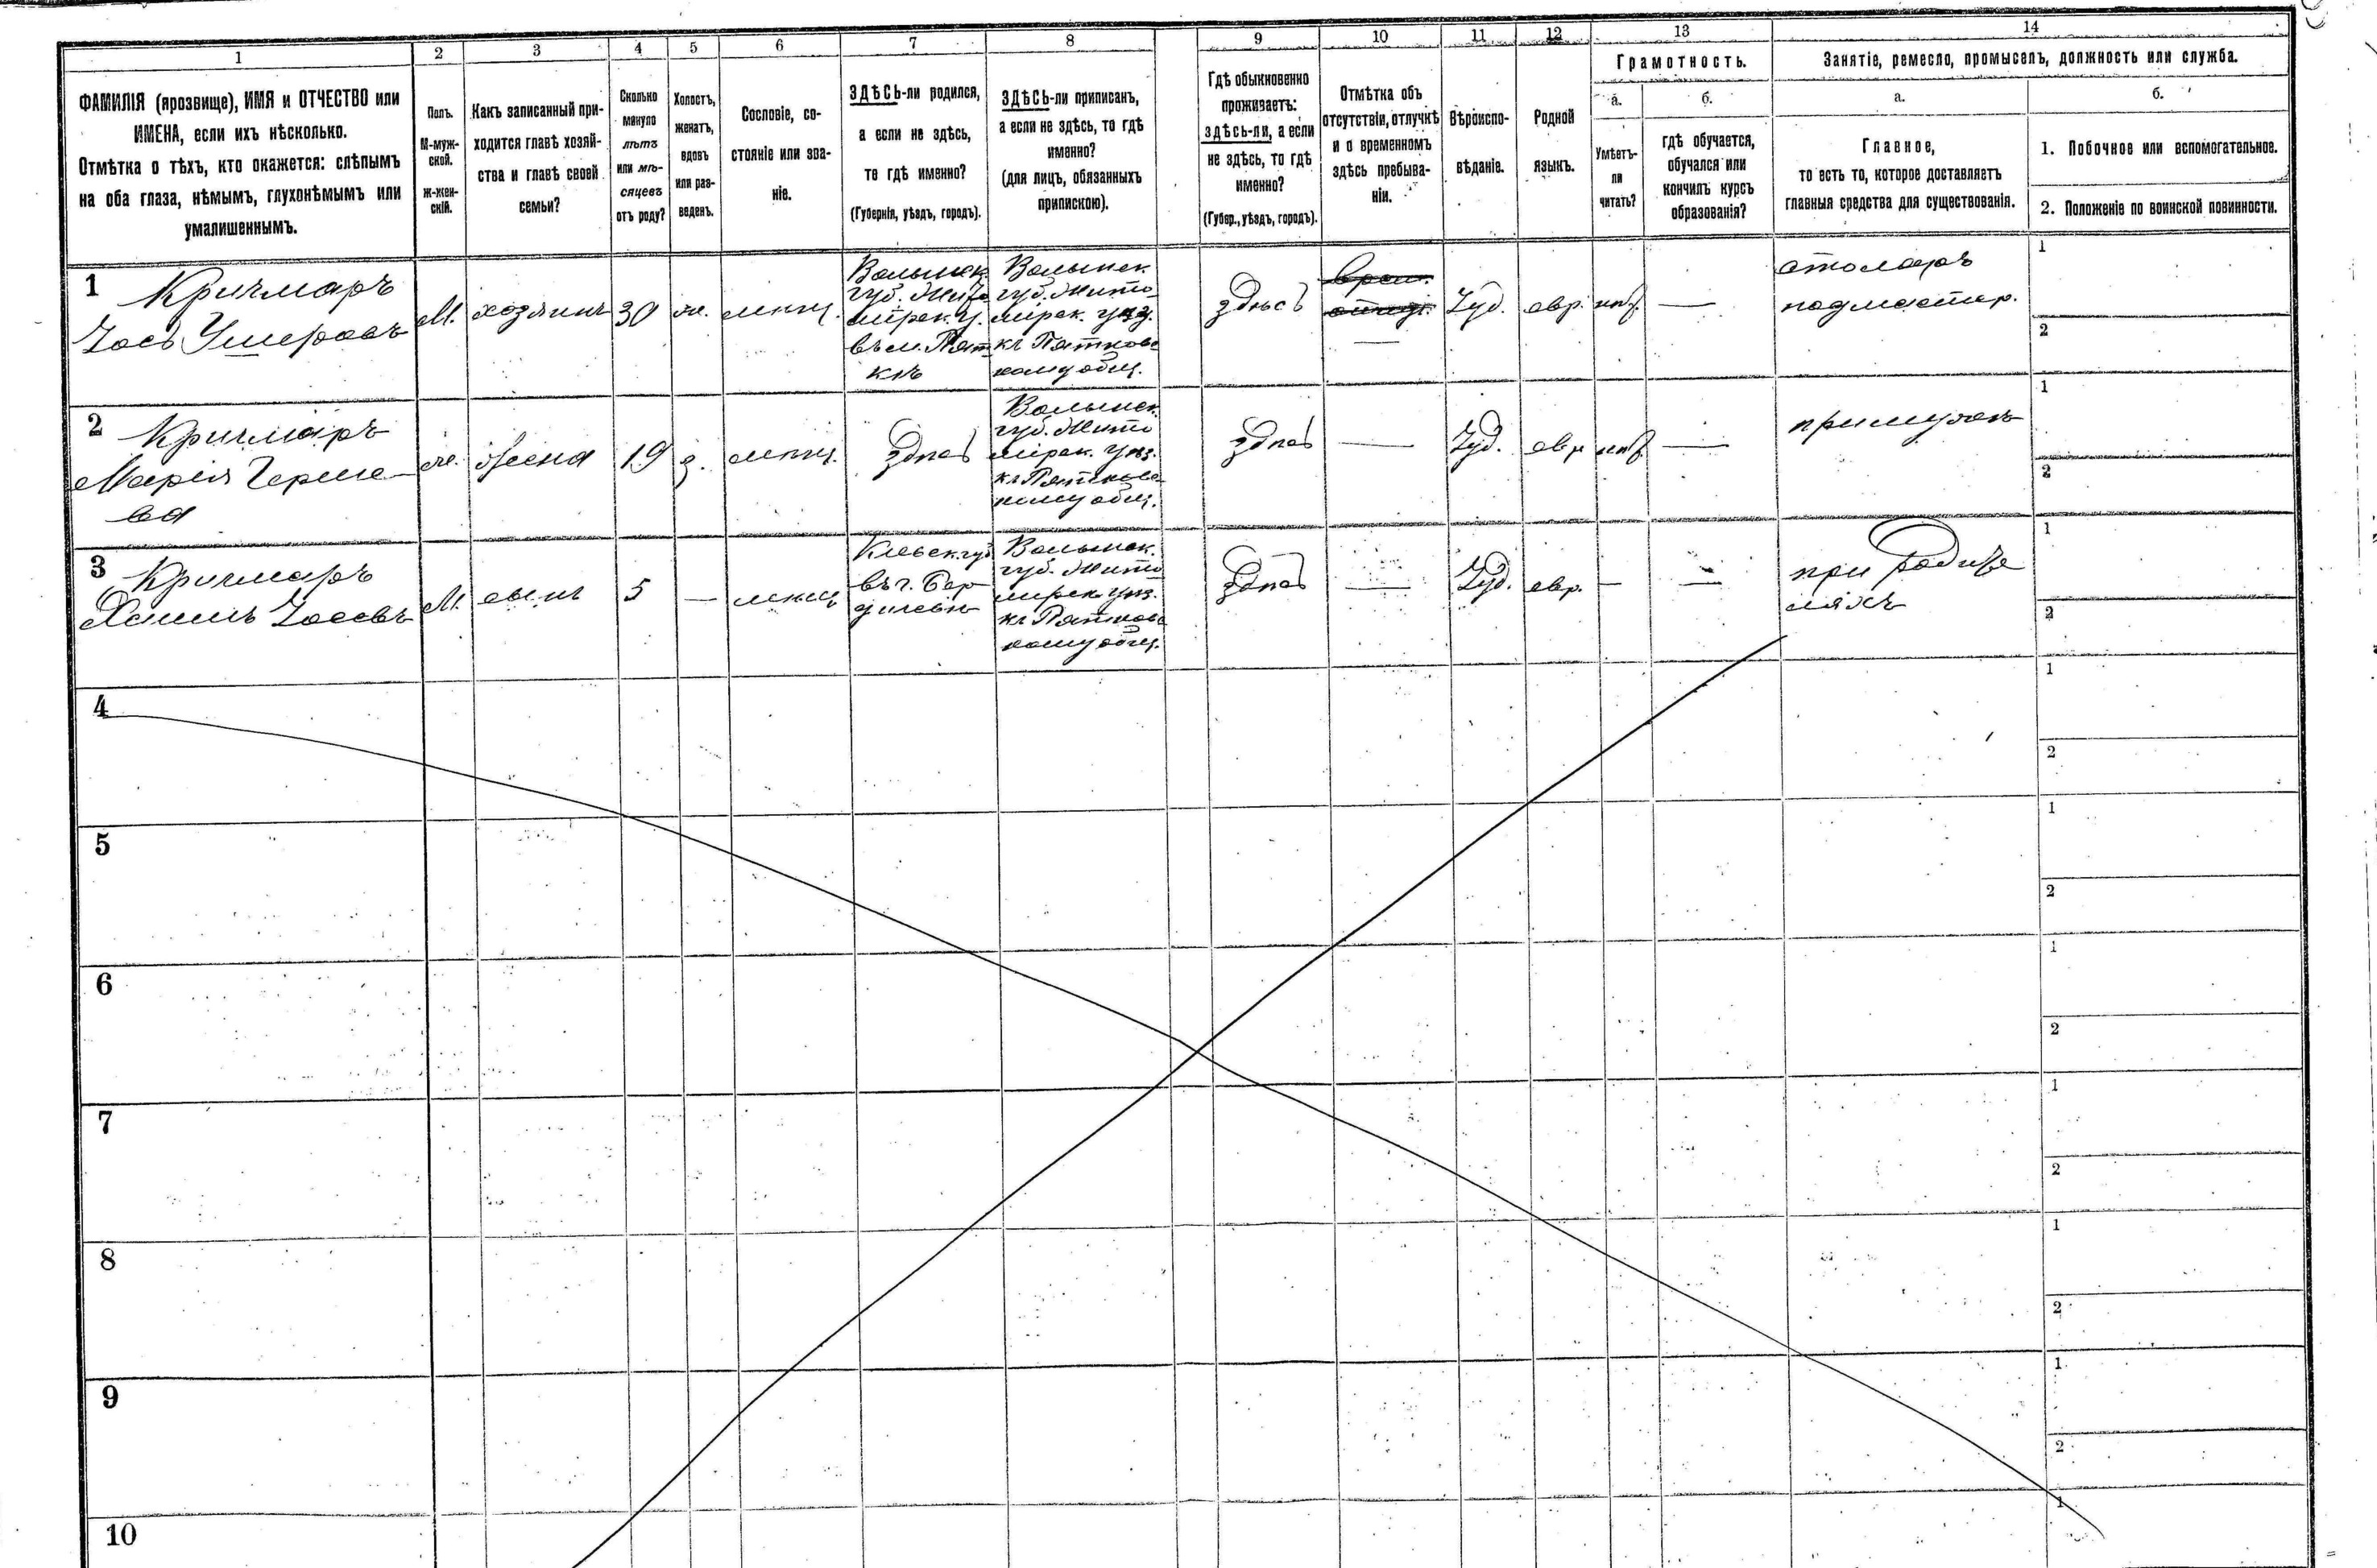 1
2
3
4
5
6
7
8
9
10
11
12
13
14
ФАМИЛІЯ (прозвище), ИМЯ и ОТЧЕСТВО или
ИМЕНА, если ихъ нѣсколько.
Отмѣтка о тѣхъ, кто окажется: слѣпымъ
на оба глаза, нѣмымъ, глухонѣмымъ или
умалишеннымъ.
Полъ.
М-муж-
ской.
Ж-жен-
скій.
Какъ записанный при-
ходится главѣ хозяй-
ства и главѣ своей
семьи?
Сколько
минуло
лѣтъ
или мѣ-
сяцевъ
отъ роду?
Холостъ,
женатъ,
вдовъ
или раз-
веденъ.
Сословіе, со-
стояніе или зва-
ніе.
ЗДѢСЬ-ли родился,
а если не здѣсь,
то гдѣ именно?
(Губернія, уѣздъ, городъ).
ЗДѢСЬ-ли приписанъ,
а если не здѣсь, то гдѣ
именно?
(для лицъ, обязанныхъ
припискою).
Гдѣ обыкновенно
проживаетъ:
здѣсь-ли, а если
не здѣсь, то гдѣ
именно?
(Губер., уѣздъ, городъ).
Отмѣтка объ
отсутствіи, отлучкѣ
и о временномъ
здѣсь пребыва-
ніи.
Вѣроиспо-
вѣданіе.
Родной
языкъ.
Грамотность.
а.
Умѣетъ-
ли
читать?
б.
гдѣ обучается,
обучался или
кончилъ курсъ
образованія?
Занятіе, ремесло, промыселъ, должность или служба.
а.
Главное,
то есть то, которое доставляетъ
главныя средства для существованія.
б.
1. Побочное или вспомогательное.
2. Положеніе по воинской повинности.
1
Кричмаръ
Іосъ Умеровъ
М.
хозяинъ
30
ж.
мѣщ.
Волынск.
губ. Жито
мірск. у.
въ м. Пят
кѣ
Волынск.
губ. Жито
мірск. уѣз.
къ Пятковс
кому общ.
здѣсь
Іуд.
евр.
нѣт
—
столяръ
подмастер.
1
2
2
Кричмаръ
Марія Герше
ва
ж.
жена
19
з.
мѣщ.
здѣсь
Волынск.
губ. Жито
мірск. уѣз.
къ Пятковс
кому общ.
здѣсь
—
Іуд.
евр
нѣт
—
при мужѣ
1
2
3
Кричмаръ
Хаимъ Іосевъ
М.
сынъ
5
—
мѣщ
Кіевск. губ
въ г. Бер
дичевѣ
Волынск.
губ. Жито
мірск. уѣз.
къ Пятковс
кому общ.
здѣсь
—
Іуд.
евр.
—
—
при родите
ляхъ
1
2
4
1
2
5
1
2
6
1
2
7
1
2
8
1
2
9
1
2
10
1